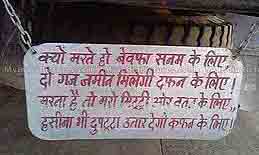 क्यों मरते हो बेवफा सनम के लिए
दो गज जमीन मिलेगी दफन के लिए।
मरना है तो मरो मिट्टी और वतन के लिए,
हसीना भी दुपट्टा उतार देगी कफन के लिए